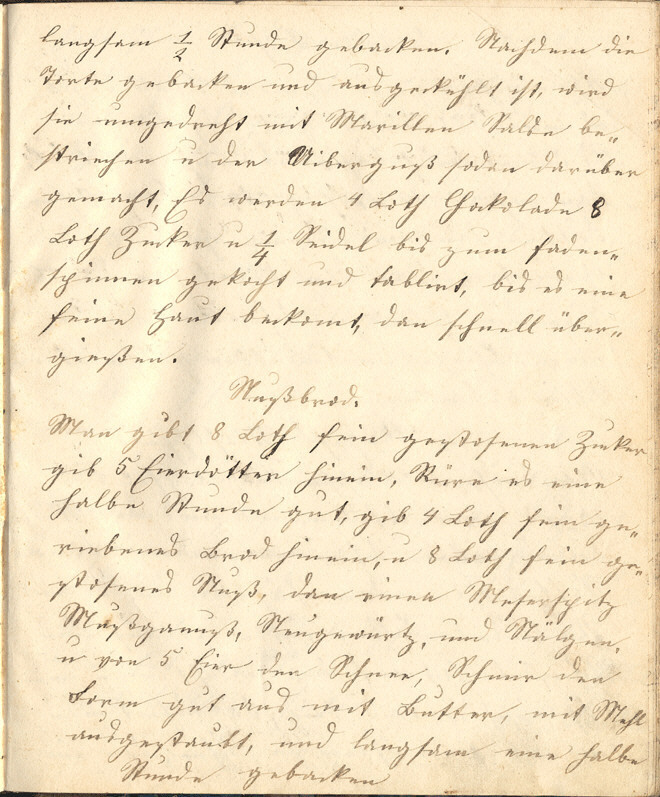 langsam 1/2 Stunde gebacken. Nachdem die
Torte gebacken und ausgekühlt ist, wird
sie umgedreht mit Marillen Salse be„
striechen u der Uiberguß sodan darüber
gemacht, Es werden 4 Loth Chokolade 8
Loth Zucker u 1/4 Seidel bis zum faden„
spinnen gekocht und tablirt, bis es eine
feine Haut bekomt, dan schnell über„
gießen.
Nußbrod.
Man gibt 8 Loth fein gestosenen Zucker
gib 5 Eierdötter hinein, Rüre es eine
halbe Stunde gut, gib 4 Loth fein ge„
riebenes Brod hinein, u 8 Loth fein ge„
stosenes Nuß, dan einen Meserspitz
Mußkanuß, Neugewürtz, und Nälgen,
u von 5 Eier den Schnee, Schmir den
Form gut aus mit Butter, mit Mehl
ausgestaubt, und langsam eine halbe
Stunde gebacken